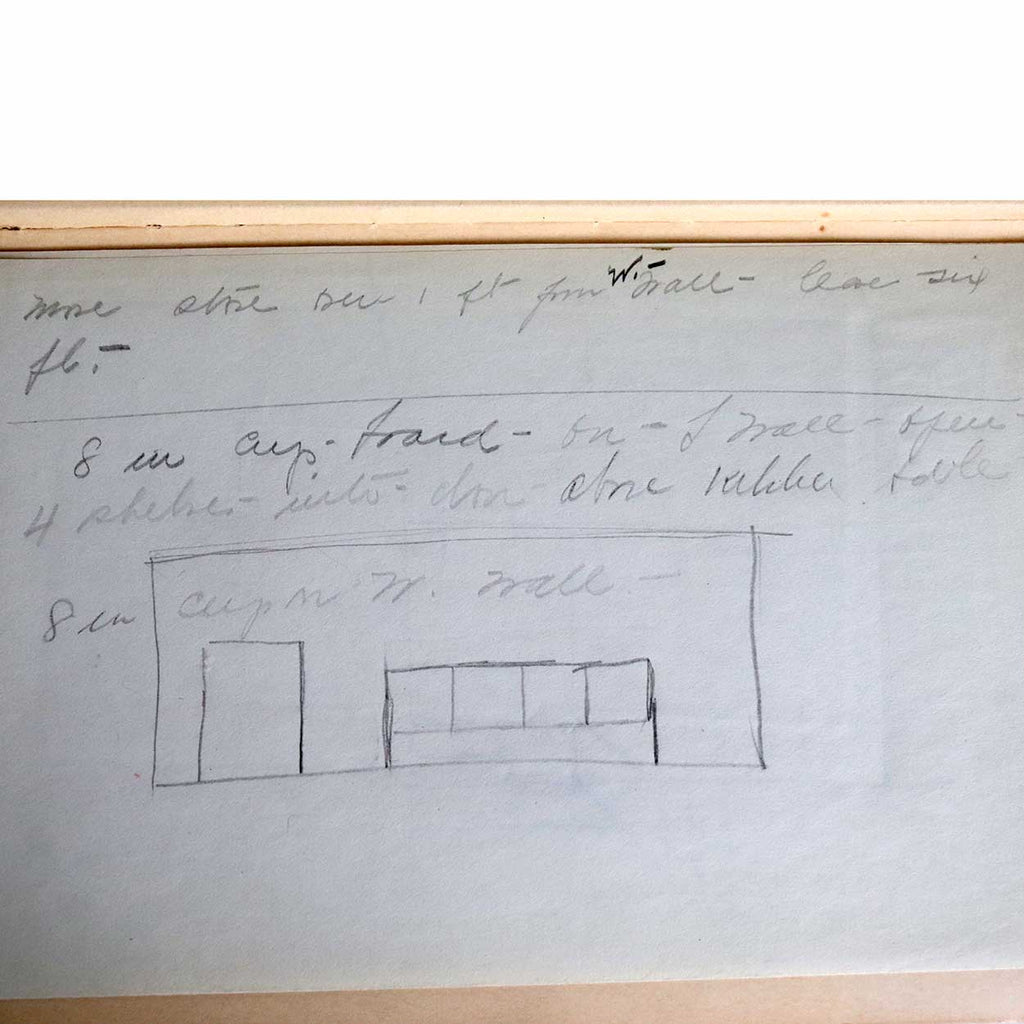 move stove 1 ft from W.- wall - leave six
ft.-
8 in cup-board - on - S wall - open -
4 shelves - into door above kitchen table
8 in cup on W. wall -